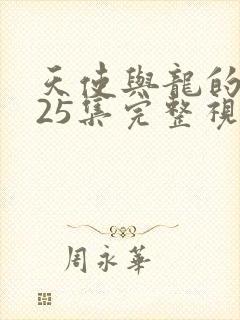 天使與龍的
25集完整視
周永華